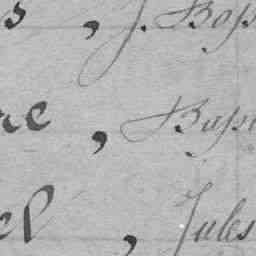 s, J. Bop
re, Bapt
el, Jules